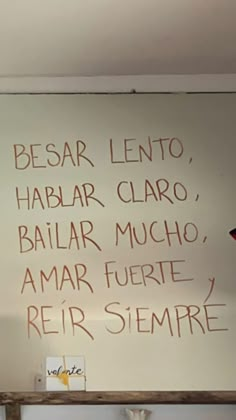 BESAR LENTO,
HABLAR CLARO,
BAILAR MUCHO,
AMAR FUERTE, Y
REÍR SIEMPRE